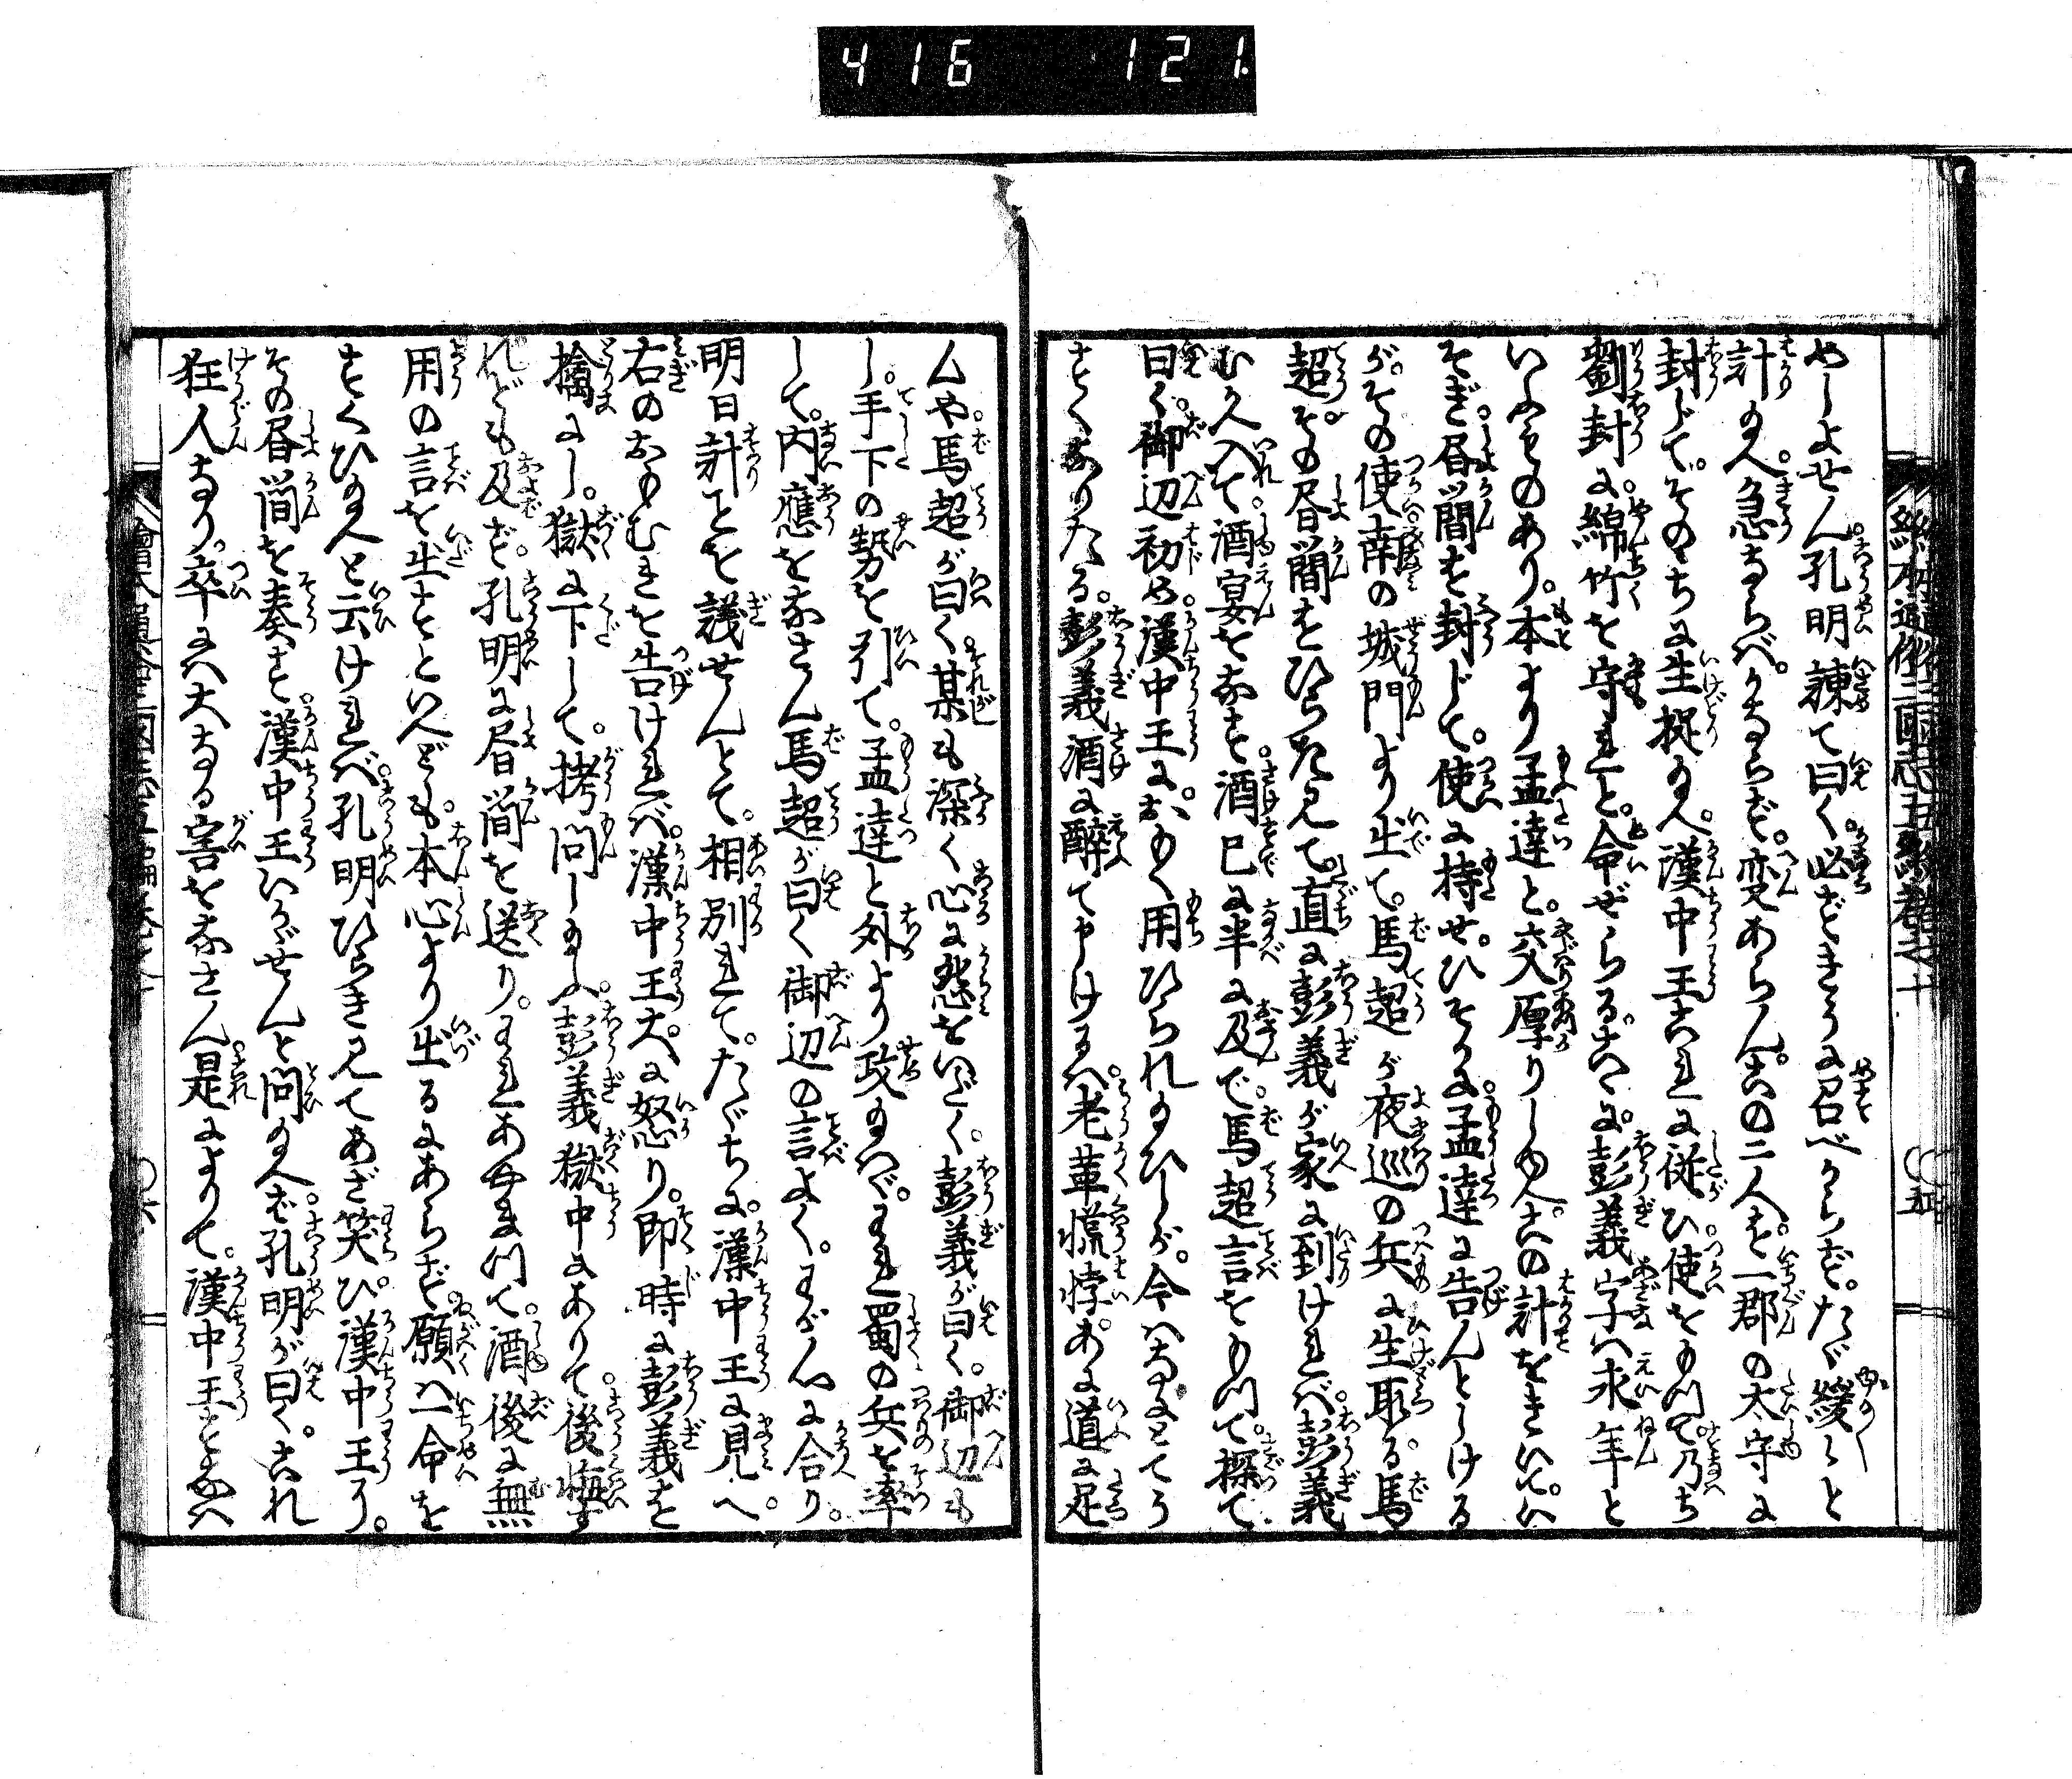 416 121
やしよせん。孔明諫て曰く。必ずきうに召べからず。たゞ緩々と
計り給へ。急ならべ。かならず。変あらん。この二人を。一郡の太守に
封じて。そのちに生捉給へ。漢中王これに従ひ。使をもつて。乃ち
劉封に。綿竹を守れと。命ぜらる。こゝに。彭義字ハ永年と
いふものあり。本より孟達と。交厚りしゆへ。この計をきいて。い
そぎ。書簡を封じて。使に持せ。ひそかに。孟達に告んとしける
が。その使南の城門より出て。馬超が夜巡の兵に生取る。馬
超。その書簡をひらき見て。直に彭義が家に到けれバ。彭義
むかへ入て。酒宴をなす。酒已に半に及で。馬超言をもつて。探て
曰く。御辺初め。漢中王に。おもく用ひられ給ひしが。今ハなにとてう
とくなりたる。彭義酒に醉て申けるハ。老革慌悖。あに道に足
んや。馬超が曰く。某も深く心に怨をいだく。彭義が曰く。御辺も
し。手下の勢を引て。孟達と外より攻給ハヾ。われ蜀の兵を率
して。内應をなさん。馬超が曰く御辺の言よく。わが心に合り。
明日計ことを議せんとて。相別れて。たゞちに。漢中王に見へ。
右のおもむきを告けれバ。漢中王大に怒り。即時に彭義を
擒にし。獄に下して。拷問し給ふ。彭義獄中にありて。後悔す
れども及ず。孔明に書簡を送り。われあやまつて。酒後に無
用の言を出すといへども。本心より出るにあらず。願ハ一命を
すくひ給へと云けれバ。孔明ひらき見てあざ笑ひ。漢中王に。
その書簡を奏す。漢中王いかゞせんと問給へバ。孔明が曰く。これ
狂人なり。卒にハ大なる害をなさん。是によりて。漢中王となへ